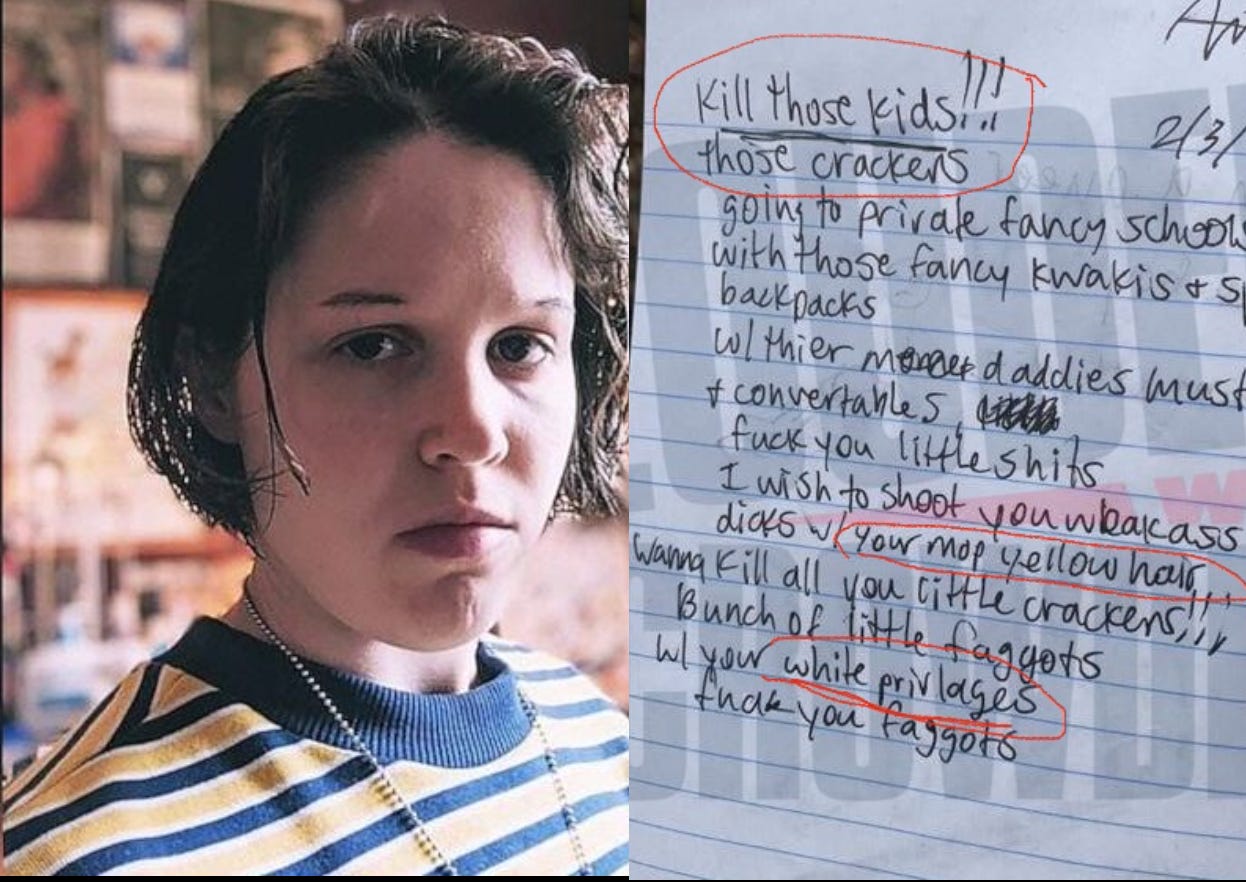 Kill those kids!!!
those crackers
2/3/
going to private fancy schools
with those fancy kwakis +
backpacks
w/ thier daddies
+ convertables
fuck you little shits
I wish to shoot you weakass
dicks w/ your mop yellow hair
wanna kill all you little crackers!!!
Bunch of little faggots
w/ your white privlages
fuck you faggots